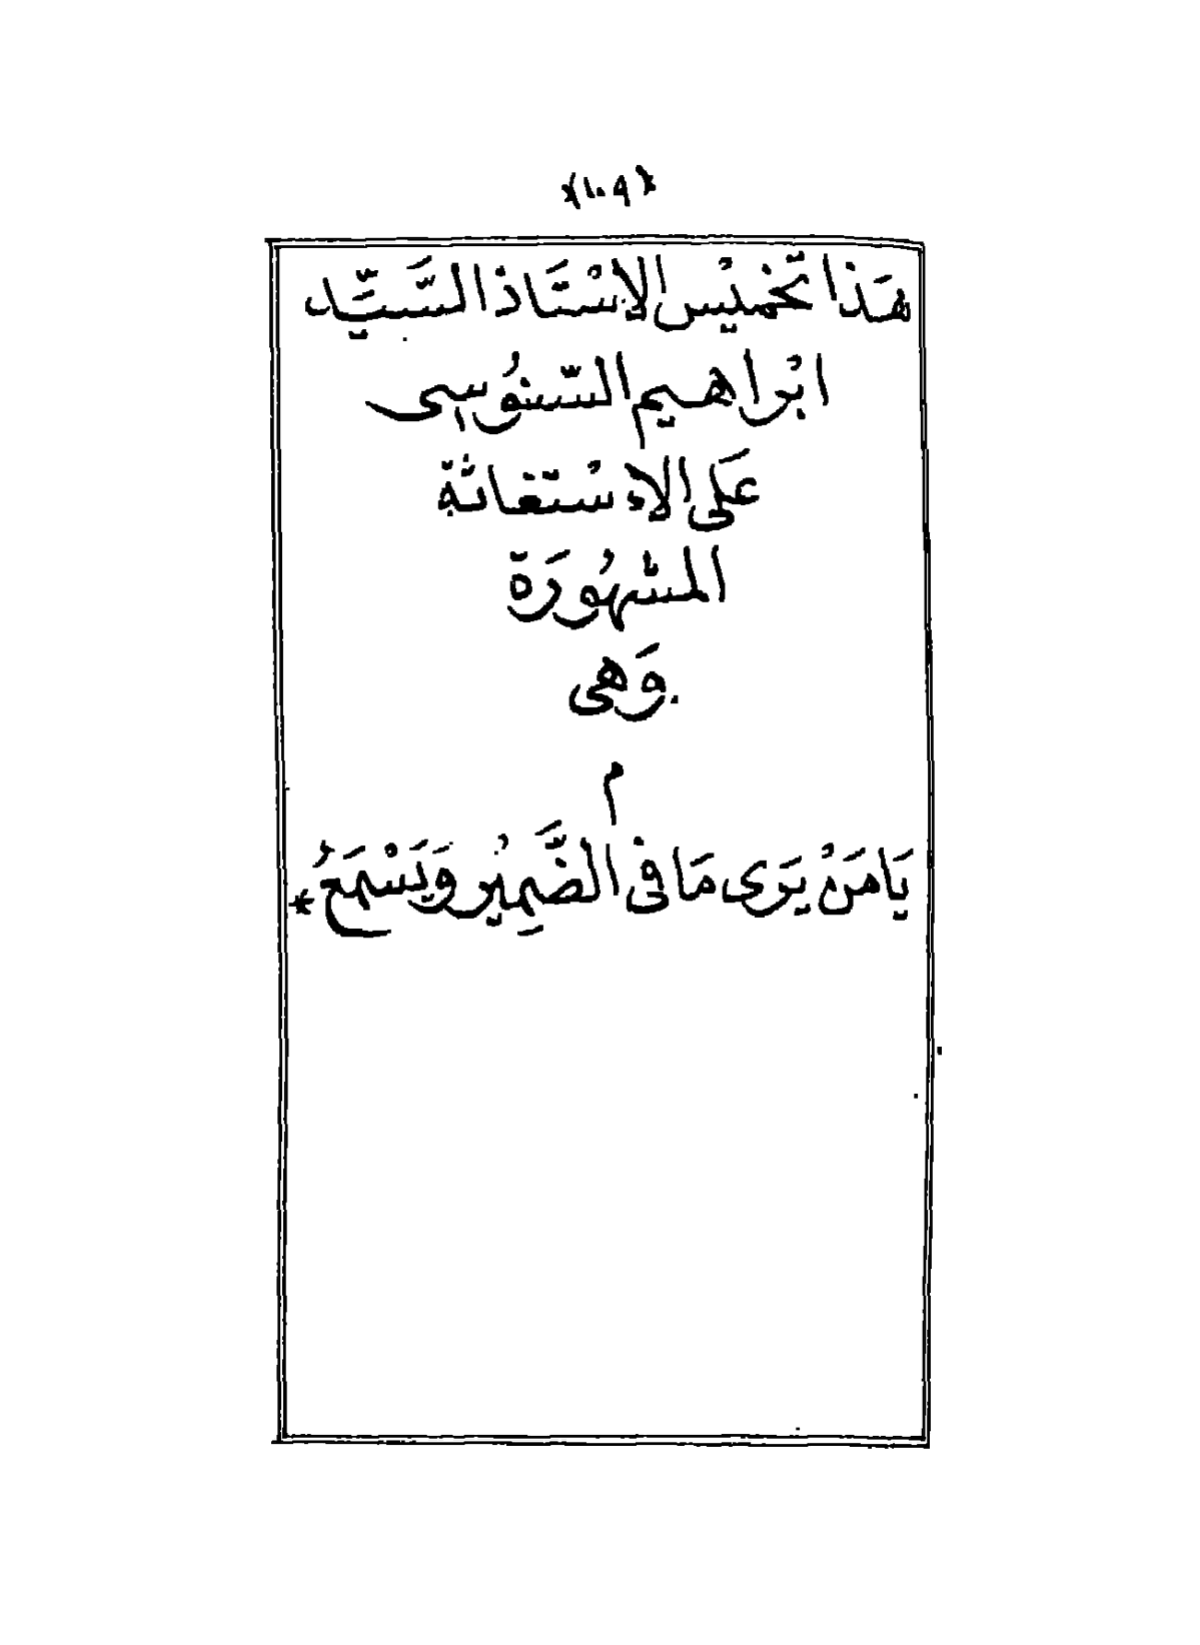 *(١٠٩)*
هَذَا تَخْمِيْس الاِسْتَاذ السَّيِّد
ابْراهيم السّنوُسى
عَلَى الإسْتغاثة
المشهُورَة
وَهى
م
يَا مَنْ يَرَى مَا فى الضَّمِيْرِ وَيَسْمَعُ *